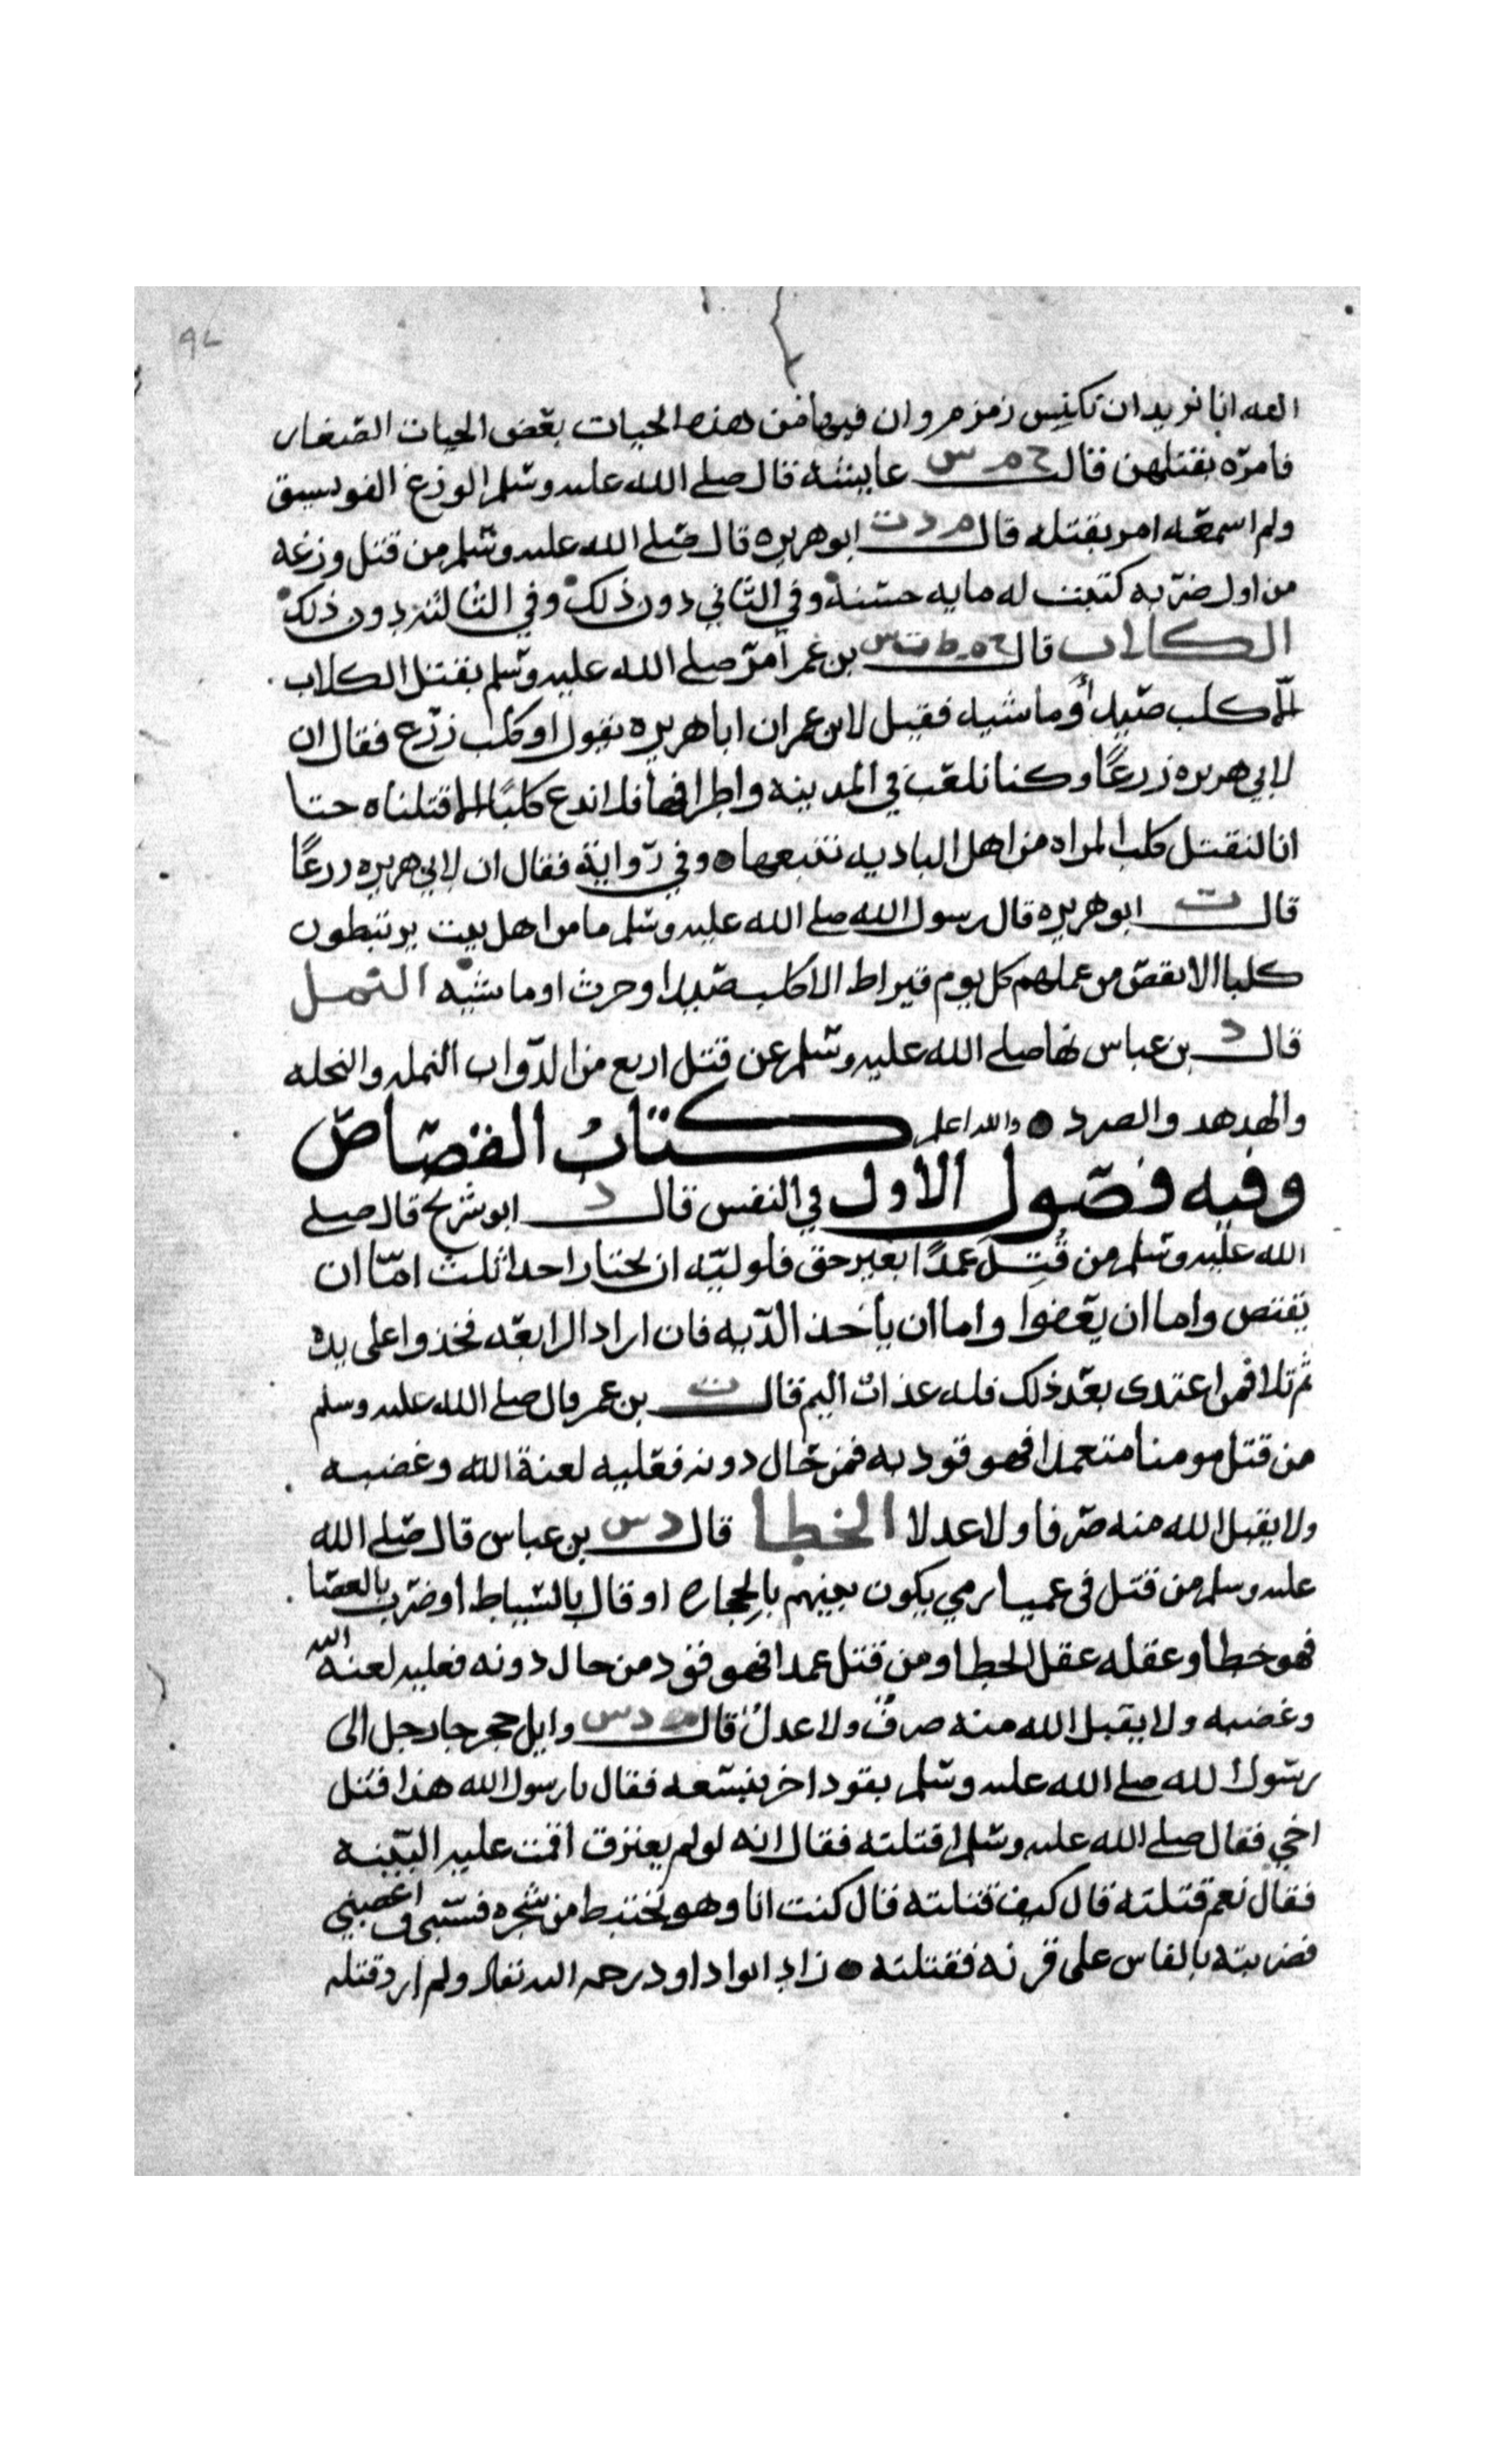 ٩٢
الله انا نريد ان نكنس زمزم وان فيها من هذه الحيات بعض الحيات الصغار
فامره بقتلهن قال خ م س عايشه قال صلى الله عليه وسلم الوزغ الفويسق
ولم اسمعه امر بقتله قال م د ت ابو هريره قال صلى الله عليه وسلم من قتل وزغه
من اول ضربه كتبت له مايه حسنة وفي الثاني دون ذلك وفي الثالثه دون ذلك
الكلاب قال خ م ط ت س بن عمر امر صلى الله عليه وسلم بقتل الكلاب
الا كلب صيد أو ماشيه فقيل لابن عمر ان ابا هريره يقول او كلب زرع فقال ان
لابي هريره زرعًا وكنا نلعب في المدينه واطرافها فلا ندع كلبًا الا قتلناه حتا
انا لنقتل كلب المراه من اهل الباديه نتبعها وفي رواية فقال ان لابي هريره زرعًا
قال ت ابو هريره قال رسول الله صلى الله عليه وسلم ما من اهل بيت يرتبطون
كلبا الا نقص من عملهم كل يوم قيراط الا كلب صيد او حرث او ماشيه النمل
قال د بن عباس نها صلى الله عليه وسلم عن قتل اربع من الدواب النمله والنحله
والهدهد والصرد والله اعلم كتاب القصاص
وفيه فصول الاول في النفس قال د ابو شريح قال صلى
الله عليه وسلم من قُتِلَ عمدًا بغير حق فلوليه ان يختار احدا ثلث امّا ان
يقتص واما ان يعفوا واما ان يأخذ الديه فان اراد الرابعه فخذوا على يده
ثم تلا فمن اعتدى بعد ذلك فله عذاب اليم قال ت بن عمر قال صلى الله عليه وسلم
من قتل مومنا متعمدا فهو قود به فمن حال دونه فعليه لعنة الله وغضبه
ولا يقبل الله منه صرفا ولا عدلا الخطا قال د س بن عباس قال صلى الله
عليه وسلم من قتل في عميا رمي يكون بينهم بالحجاره او قال بالسياط او ضرب بالعصا
فهو خطا وعقله عقل الخطا ومن قتل عمدا فهو قود من حال دونه فعليه لعنة الله
وغضبه ولا يقبل الله منه صرفٌ ولا عدلٌ قال م د س وايل حجر جا رجل الى
رسول الله صلى الله عليه وسلم يقود اخر بنسعه فقال يا رسول الله هذا قتل
اخي فقال صلى الله عليه وسلم اقتلته فقال انه لو لم يعترف اقمت عليه البينه
فقال نعم قتلته قال كيف قتلته قال كنت انا وهو نختبط من شجره فسبني فاغضبني
فضربته بالفاس على قرنه فقتلته زاد ابوا داود رحمه الله تعالى ولم ارد قتله